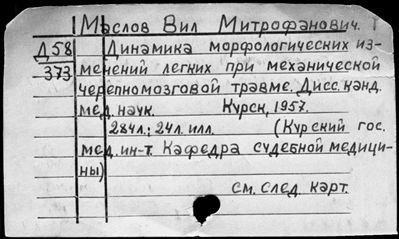 Маслов Вил Митрофанович.
Д 58 Динамика морфологических из-
373 менений легких при механической
черепномозговой травме. Дисс. канд.
мед. наук. Курск, 1957.
284л.; 24л. илл. (Курский гос.
мед. ин-т. Кафедра судебной медици-
ны)
см. след. карт.